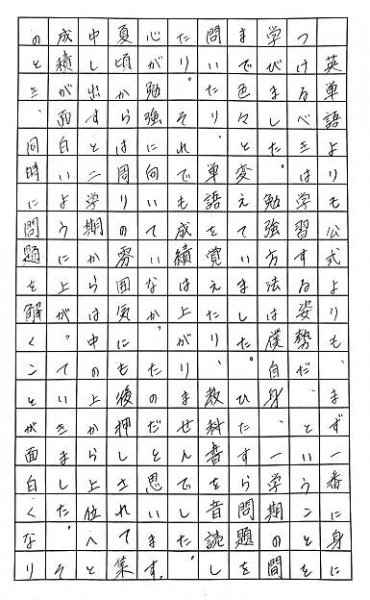 英単語よりも公式よりも、まず一番に身に
つけるべきは学習する姿勢だ、ということを
学びました。勉強方法は僕自身、一学期の間
まで色々と変えていました。ひたすら問題を
問いたり、単語を覚えたり、教科書を音読し
たり。それでも成績は上がりませんでした。
心が勉強に向いていなかったのだと思います。
夏頃からは周りの雰囲気にも後押しされて集
中し出すと、二学期から中の上から上位へと
成績が面白いように上がっていきました。そ
のとき、同時に問題を解くことが面白くなり